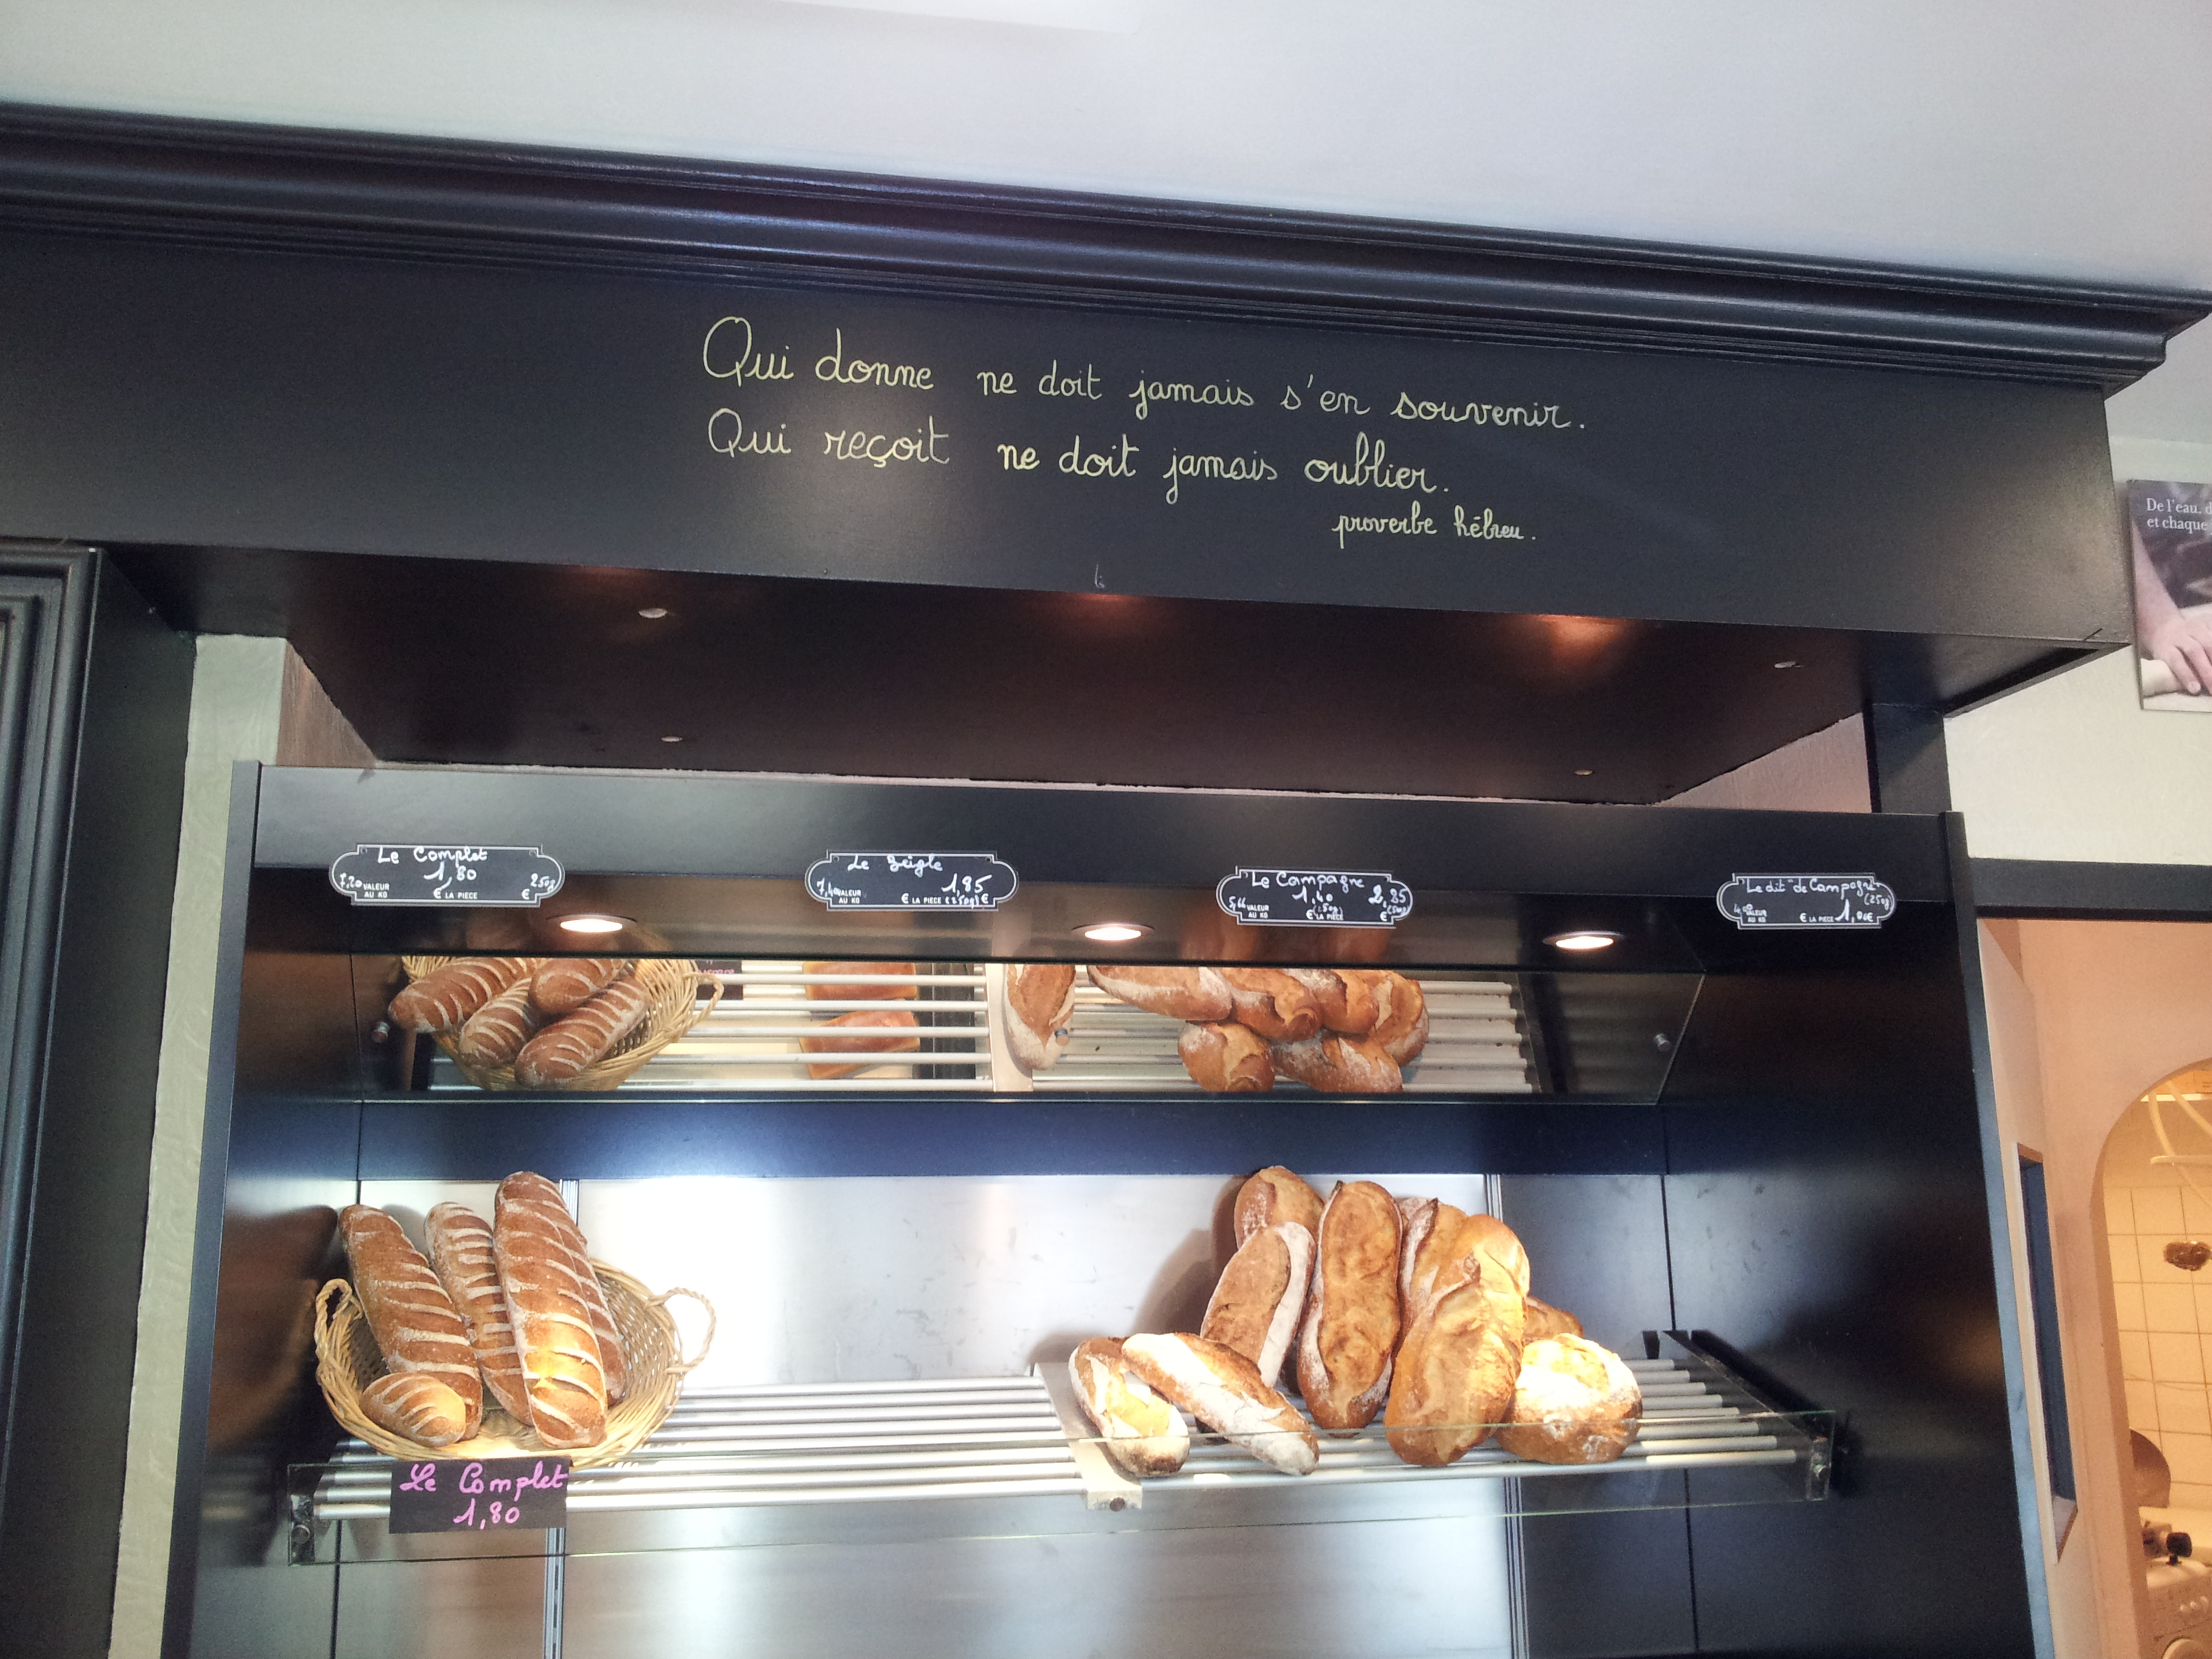 Qui donne ne doit jamais s'en souvenir.
Qui reçoit ne doit jamais oublier.
proverbe hébreu.
De l'eau, d
et chaque
Le Complet
1,80
7,20 VALEUR AU KG € LA PIECE € 250g
Le Seigle
1,85
7,40 VALEUR AU KG € LA PIECE (250g) €
Le Campagne
1,40 2,35
VALEUR AU KG € LA PIECE €
"Le dit" de Campagne
(250g)
VALEUR AU KG € LA PIECE
Le Complet
1,80